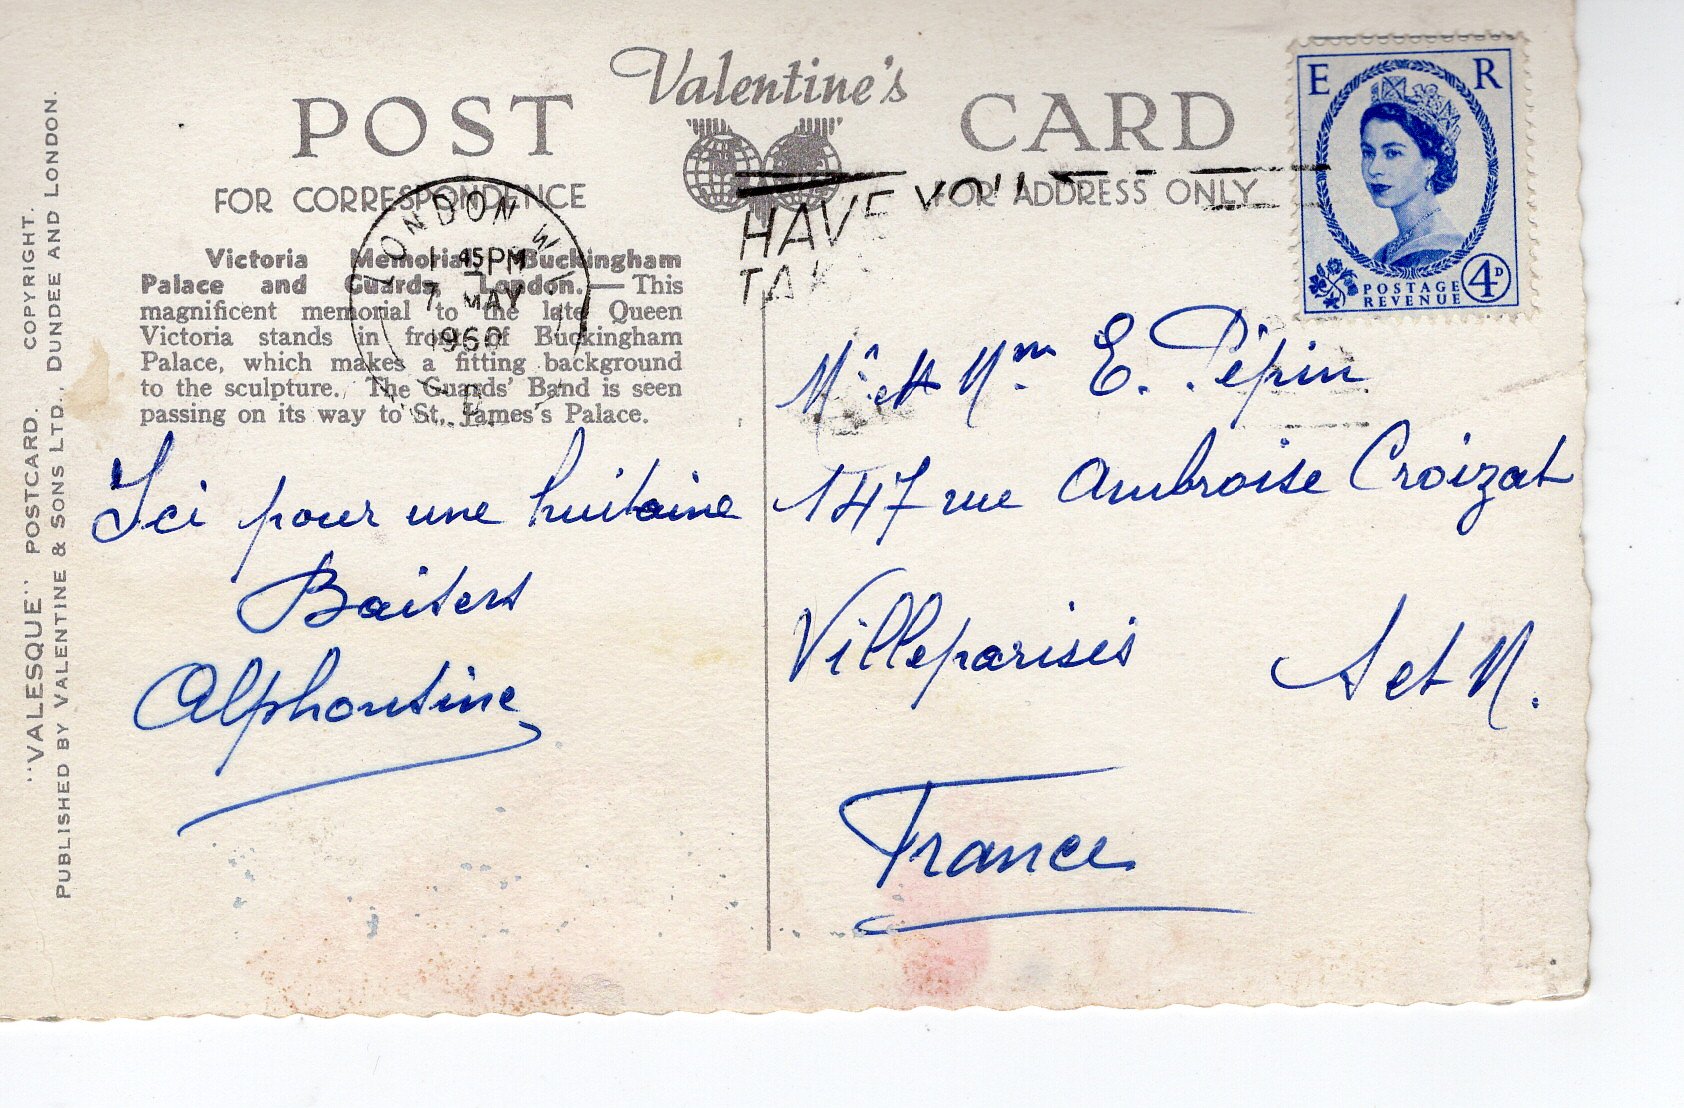 Valentine's
POST CARD
FOR CORRESPONDENCE
FOR ADDRESS ONLY
E R
POSTAGE
REVENUE
4D
LONDON W
1 45 PM
7 MAY
1960
HAVE YOU
TAK
Victoria Memorial, Buckingham
Palace and Guards, London.— This
magnificent memorial to the late Queen
Victoria stands in front of Buckingham
Palace, which makes a fitting background
to the sculpture. The Guards' Band is seen
passing on its way to St. James's Palace.
Ici pour une huitaine
Baisers
Alphonsine
Mr et Mme E. Pépin
147 rue Ambroise Croizat
Villeparisis
S et M.
France
"VALESQUE" POSTCARD. COPYRIGHT.
PUBLISHED BY VALENTINE & SONS LTD., DUNDEE AND LONDON.